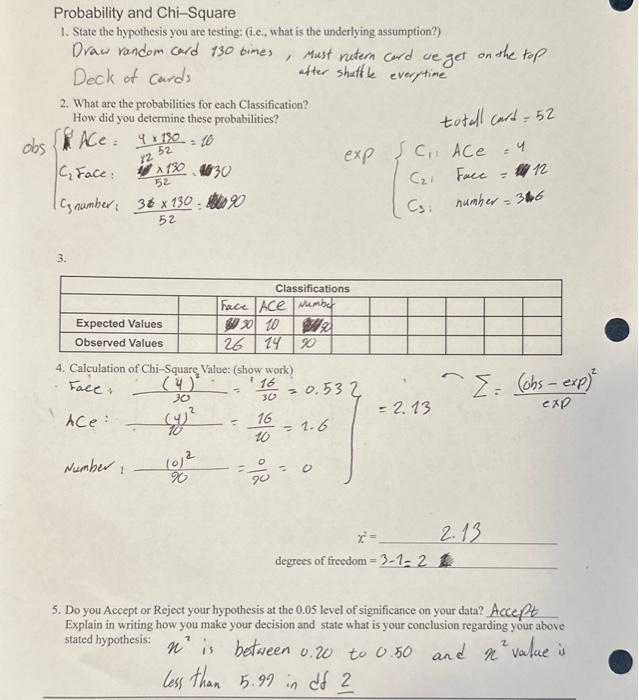 Probability and Chi–Square
1. State the hypothesis you are testing: (i.e., what is the underlying assumption?)
Draw random card 130 times , Must return card we get on the top
Deck of cards after shuttle everytime
2. What are the probabilities for each Classification?
How did you determine these probabilities?
totall card = 52
obs { ACe : 4 x 130 / 52 = 10
C2 Face : 12 x 130 / 52 = 30
C3 number : 36 x 130 / 52 = 90
exp { C1: ACe = 4
C2: Face = 12
C3: number = 36
3.
Classifications
Face ACe Number
Expected Values 30 10 90
Observed Values 26 14 90
4. Calculation of Chi–Square Value: (show work)
Face : (4)² / 30 = 16 / 30 = 0.53
ACe : (4)² / 10 = 16 / 10 = 1.6
Number : (0)² / 90 = 0 / 90 = 0
= 2.13
Σ = (obs - exp)² / exp
x² = 2.13
degrees of freedom = 3-1= 2
5. Do you Accept or Reject your hypothesis at the 0.05 level of significance on your data? Accept
Explain in writing how you make your decision and state what is your conclusion regarding your above
stated hypothesis: x² is between 0.20 to 0.50 and x² value is
less than 5.99 in df 2